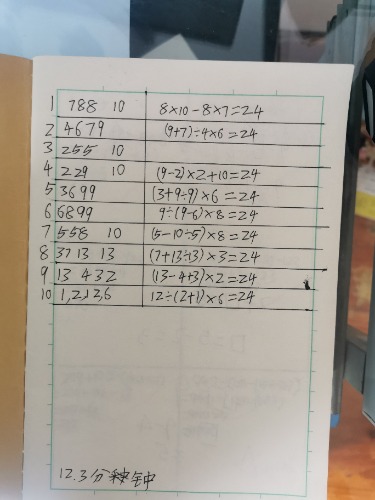 1 788 10 8×10-8×7=24
2 4679 (9+7)÷4×6=24
3 255 10
4 229 10 (9-2)×2+10=24
5 3699 (3+9÷9)×6=24
6 6899 9÷(9-6)×8=24
7 558 10 (5-10÷5)×8=24
8 37 13 13 (7+13÷13)×3=24
9 13 432 (13-4+3)×2=24
10 1,2,12,6 12÷(2+1)×6=24
12.3分钟